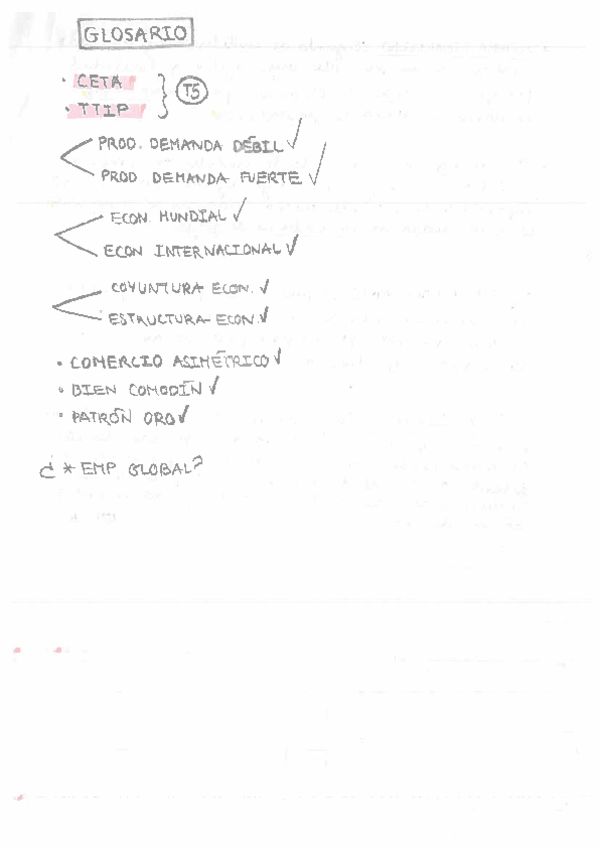 GLOSARIO
· CETA
· TTIP
T5
PROD. DEMANDA DÉBIL ✓
PROD DEMANDA FUERTE ✓
ECON. MUNDIAL ✓
ECON INTERNACIONAL ✓
COYUNTURA ECON. ✓
ESTRUCTURA ECON. ✓
· COMERCIO ASIMÉTRICO ✓
· BIEN COMODÍN ✓
· PATRÓN ORO ✓
¿ * EMP GLOBAL?